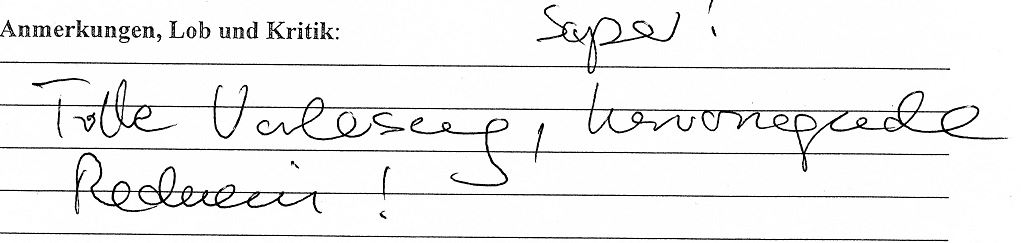 Anmerkungen, Lob und Kritik:
Super!
Tolle Vorlesung, hervorragende
Rednerin!